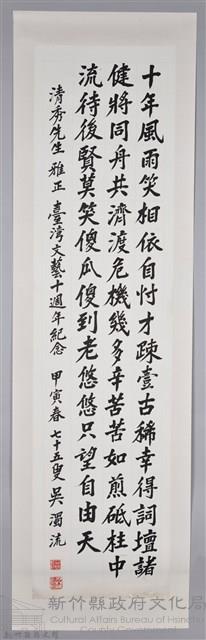 十年風雨笑相依自忖才疎壹古稀幸得詞壇諸
健將同舟共濟渡危機幾多辛苦苦如煎砥柱中
流待後賢莫笑傻瓜傻到老悠悠只望自由天
清秀先生雅正 臺灣文藝十週年紀念 甲寅春 七十五叟 吳濁流
新竹縣政府文化局
Cultural Affairs Bureau of Hsinchu
County Government